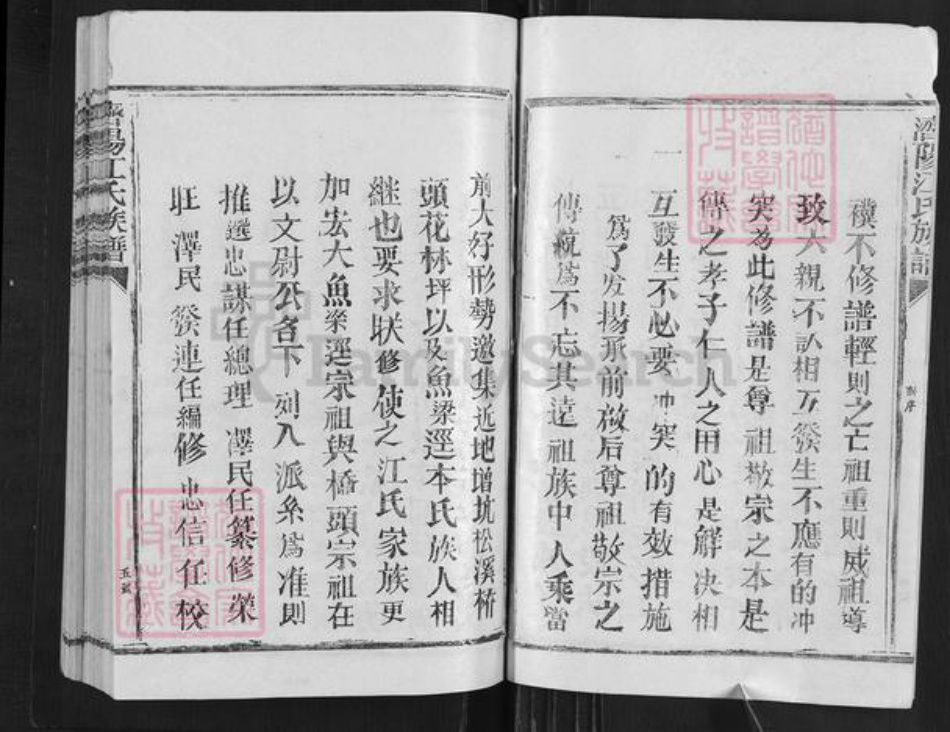 濟陽江氏族譜
譜序
襆不修譜輕則之亡祖重則威祖導
致六親不认相互發生不應有的冲
突為此修譜是尊祖敬宗之本是
傳之孝子仁人之用心是解决相
互發生不必要冲突的有效措施
一為了发揚承前啟后尊祖敬宗之
傳統為不忘其遠祖族中人乘當
前大好形勢邀集近地增坑松溪桥
頭花林坪以及魚梁逕本氏族人相
継也要求联修使之江氏家族更
加宏大魚梁逕宗祖與橋頭宗祖在
以文尉公名下列入派系為准則
推選忠謀任總理澤民任纂修荣
旺澤民發連任編修忠信任校
濟陽江氏族譜
FamilySearch